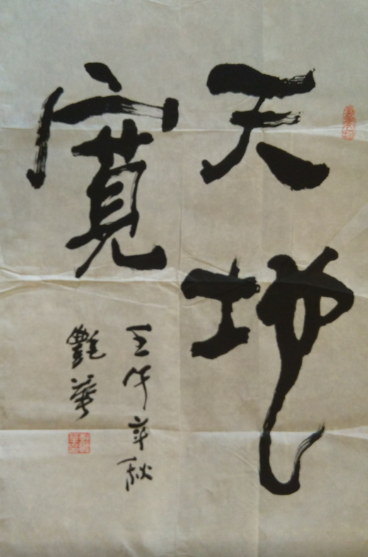 天地
寬
壬午年秋
艷華